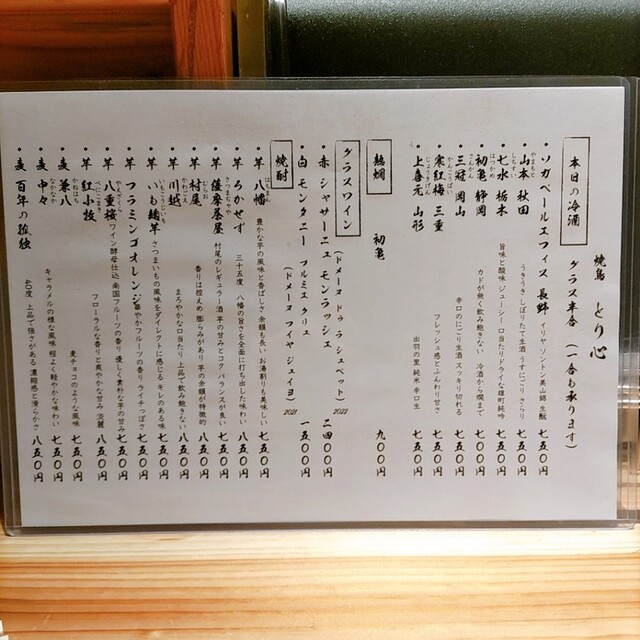 焼鳥 とり心
本日の冷酒 グラス半合 (一合も承ります)
・ソガペールエフィス 長野 イリヤ・ソントン 美山錦 生酛 七五〇円
・山本 秋田 うきうき しぼりたて生酒 すこにごり さらり 七五〇円
・七水 栃木 旨味と酸味 ジューシー 口当たりドライな雄町純吟 七五〇円
・初亀 静岡 カドが無く飲み飽きない 冷酒から燗まで 七五〇円
・三冠 岡山 辛口のにごり生酒 スッキリ切れる 七〇〇円
・寒紅梅 三重 フレッシュ感とふんわり甘さ 七五〇円
・上喜元 山形 出羽の里 純米 辛口生 七五〇円
熱燗 初亀 九〇〇円
グラスワイン
・赤 シャサーニュ モンラッシェ (ドメーヌ ドゥ ラ シュペット) 2022 二四〇〇円
・白 モンタニー プルミエ クリュ (ドメーヌ フイヤ ジュイヨ) 2021 一五〇〇円
焼酎
・芋 八幡 豊かな芋の風味と香ばしさ 余韻も長い お湯割りも美味しい 七五〇円
・芋 ろかせず 三十五度 八幡の旨さを全面に打ち出した味わい 八五〇円
・芋 薩摩茶屋 村尾のレギュラー酒 芋の甘みとコク バランスが良い 七五〇円
・芋 村尾 香りは控えめ 膨らみがあり 芋の余韻が特徴的 八五〇円
・芋 川越 まろやかな口当たり 上品で飲み飽きない 八五〇円
・芋 いも麹芋 さつまいもの風味をダイレクトに感じる キレのある味 七五〇円
・芋 フラミンゴオレンジ 華やかフルーツの香り ライチっぽさ 七五〇円
・芋 八重桜 ワイン酵母仕込 南国フルーツの香り 優しく素朴な芋の甘み 七五〇円
・芋 紅小牧 フローラルな香りと爽やかな甘み 淡麗 八五〇円
・麦 兼八 麦チョコのような風味 七五〇円
・麦 中々 キャラメルの様な風味 程よく軽やかな味わい 七五〇円
・麦 百年の孤独 40度 上品で強さがある 濃縮感と滑らかさ 八五〇円